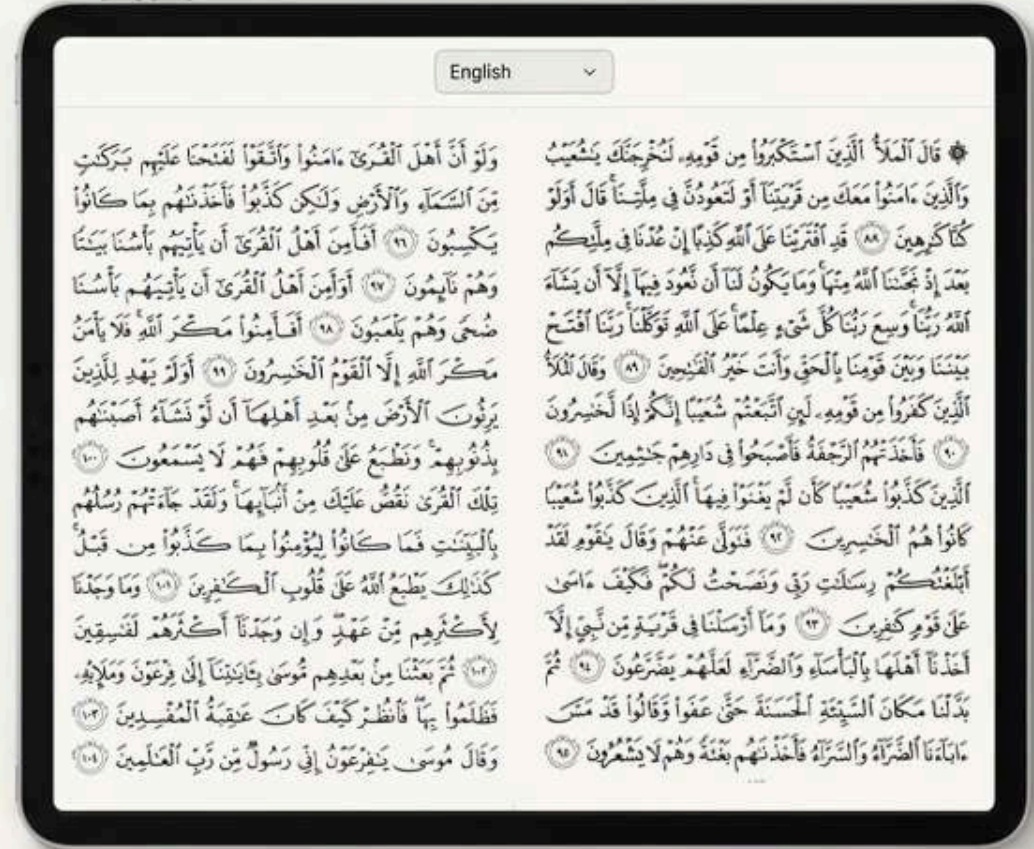 English
۞ قَالَ ٱلْمَلَأُ ٱلَّذِينَ ٱسْتَكْبَرُوا۟ مِن قَوْمِهِۦ لَنُخْرِجَنَّكَ يَـٰشُعَيْبُ
وَٱلَّذِينَ ءَامَنُوا۟ مَعَكَ مِن قَرْيَتِنَآ أَوْ لَتَعُودُنَّ فِى مِلَّتِنَا ۚ قَالَ أَوَلَوْ
كُنَّا كَـٰرِهِينَ ٨٨ قَدِ ٱفْتَرَيْنَا عَلَى ٱللَّهِ كَذِبًا إِنْ عُدْنَا فِى مِلَّتِكُم
بَعْدَ إِذْ نَجَّىٰنَا ٱللَّهُ مِنْهَا ۚ وَمَا يَكُونُ لَنَآ أَن نَّعُودَ فِيهَآ إِلَّآ أَن يَشَآءَ
ٱللَّهُ رَبُّنَا ۚ وَسِعَ رَبُّنَا كُلَّ شَىْءٍ عِلْمًا ۚ عَلَى ٱللَّهِ تَوَكَّلْنَا ۚ رَبَّنَا ٱفْتَحْ
بَيْنَنَا وَبَيْنَ قَوْمِنَا بِٱلْحَقِّ وَأَنتَ خَيْرُ ٱلْفَـٰتِحِينَ ٨٩ وَقَالَ ٱلْمَلَأُ
ٱلَّذِينَ كَفَرُوا۟ مِن قَوْمِهِۦ لَئِنِ ٱتَّبَعْتُمْ شُعَيْبًا إِنَّكُمْ إِذًا لَّخَـٰسِرُونَ
٩٠ فَأَخَذَتْهُمُ ٱلرَّجْفَةُ فَأَصْبَحُوا۟ فِى دَارِهِمْ جَـٰثِمِينَ ٩١
ٱلَّذِينَ كَذَّبُوا۟ شُعَيْبًا كَأَن لَّمْ يَغْنَوْا۟ فِيهَا ۚ ٱلَّذِينَ كَذَّبُوا۟ شُعَيْبًا
كَانُوا۟ هُمُ ٱلْخَـٰسِرِينَ ٩٢ فَتَوَلَّىٰ عَنْهُمْ وَقَالَ يَـٰقَوْمِ لَقَدْ
أَبْلَغْتُكُمْ رِسَـٰلَـٰتِ رَبِّى وَنَصَحْتُ لَكُمْ ۖ فَكَيْفَ ءَاسَىٰ
عَلَىٰ قَوْمٍ كَـٰفِرِينَ ٩٣ وَمَآ أَرْسَلْنَا فِى قَرْيَةٍ مِّن نَّبِىٍّ إِلَّآ
أَخَذْنَآ أَهْلَهَا بِٱلْبَأْسَآءِ وَٱلضَّرَّآءِ لَعَلَّهُمْ يَضَّرَّعُونَ ٩٤ ثُمَّ
بَدَّلْنَا مَكَانَ ٱلسَّيِّئَةِ ٱلْحَسَنَةَ حَتَّىٰ عَفَوا۟ وَّقَالُوا۟ قَدْ مَسَّ
ءَابَآءَنَا ٱلضَّرَّآءُ وَٱلسَّرَّآءُ فَأَخَذْنَـٰهُم بَغْتَةً وَهُمْ لَا يَشْعُرُونَ ٩٥
وَلَوْ أَنَّ أَهْلَ ٱلْقُرَىٰٓ ءَامَنُوا۟ وَٱتَّقَوْا۟ لَفَتَحْنَا عَلَيْهِم بَرَكَـٰتٍ
مِّنَ ٱلسَّمَآءِ وَٱلْأَرْضِ وَلَـٰكِن كَذَّبُوا۟ فَأَخَذْنَـٰهُم بِمَا كَانُوا۟
يَكْسِبُونَ ٩٦ أَفَأَمِنَ أَهْلُ ٱلْقُرَىٰٓ أَن يَأْتِيَهُم بَأْسُنَا بَيَـٰتًا
وَهُمْ نَآئِمُونَ ٩٧ أَوَأَمِنَ أَهْلُ ٱلْقُرَىٰٓ أَن يَأْتِيَهُم بَأْسُنَا
ضُحًى وَهُمْ يَلْعَبُونَ ٩٨ أَفَأَمِنُوا۟ مَكْرَ ٱللَّهِ ۚ فَلَا يَأْمَنُ
مَكْرَ ٱللَّهِ إِلَّا ٱلْقَوْمُ ٱلْخَـٰسِرُونَ ٩٩ أَوَلَمْ يَهْدِ لِلَّذِينَ
يَرِثُونَ ٱلْأَرْضَ مِنۢ بَعْدِ أَهْلِهَآ أَن لَّوْ نَشَآءُ أَصَبْنَـٰهُم
بِذُنُوبِهِمْ ۚ وَنَطْبَعُ عَلَىٰ قُلُوبِهِمْ فَهُمْ لَا يَسْمَعُونَ ١٠٠
تِلْكَ ٱلْقُرَىٰ نَقُصُّ عَلَيْكَ مِنْ أَنۢبَآئِهَا ۚ وَلَقَدْ جَآءَتْهُمْ رُسُلُهُم
بِٱلْبَيِّنَـٰتِ فَمَا كَانُوا۟ لِيُؤْمِنُوا۟ بِمَا كَذَّبُوا۟ مِن قَبْلُ ۚ
كَذَٰلِكَ يَطْبَعُ ٱللَّهُ عَلَىٰ قُلُوبِ ٱلْكَـٰفِرِينَ ١٠١ وَمَا وَجَدْنَا
لِأَكْثَرِهِم مِّنْ عَهْدٍ ۖ وَإِن وَجَدْنَآ أَكْثَرَهُمْ لَفَـٰسِقِينَ
١٠٢ ثُمَّ بَعَثْنَا مِنۢ بَعْدِهِم مُّوسَىٰ بِـَٔايَـٰتِنَآ إِلَىٰ فِرْعَوْنَ وَمَلَإِي۟هِۦ
فَظَلَمُوا۟ بِهَا ۖ فَٱنظُرْ كَيْفَ كَانَ عَـٰقِبَةُ ٱلْمُفْسِدِينَ ١٠٣
وَقَالَ مُوسَىٰ يَـٰفِرْعَوْنُ إِنِّى رَسُولٌ مِّن رَّبِّ ٱلْعَـٰلَمِينَ ١٠٤